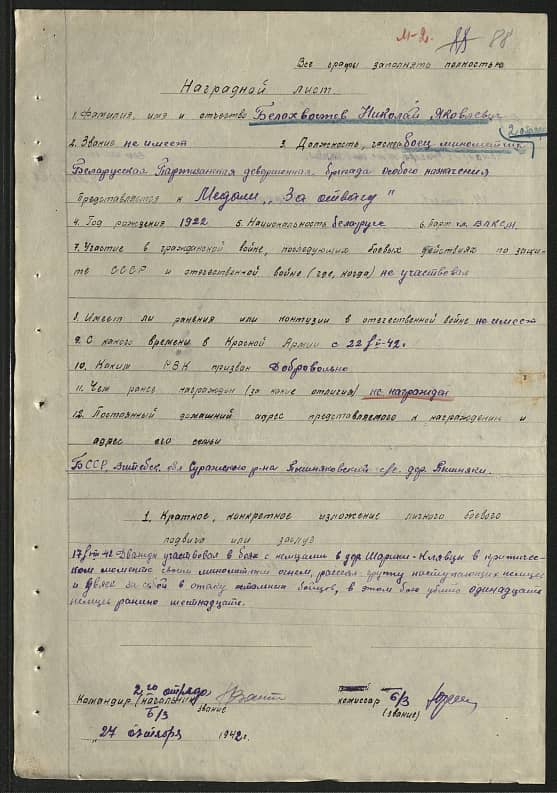 м-2. 88
Все графы заполнять полностью
Наградной лист
1. Фамилия, имя и отчество Белохвостов Николай Яковлевич
2. Звание не имеет 3. Должность, часть боец минометчик 2 отряда
Беларусская Партизанская двварионная бригада особого назначения
представляется к Медали „За отвагу"
4. Год рождения 1922 5. Национальность беларусс 6. парт чл. ВЛКСМ
7. Участие в гражданской войне, последующих боевых действиях по защи-
те СССР и отечественной войне (где, когда) не участвовал
8. Имеет ли ранения или контузии в отечественной войне не имеет
9. С какого времени в Красной Армии с 22 42г.
10. Каким РВК призван Добровольно
11. Чем ранее награжден (за какие отличия) не награжден
12. Постоянный домашний адрес представляемого к награждению и
адрес его семьи
БССР, Витебск. обл Суражского р-на Пышняковский с/с. дер. Пышняки.
1. Краткое, конкретное изложение личного боевого
подвига или заслуг
17 42 Дважды участвовал в боях с немцами в дер. Шарики-Клявцы в критичес-
ком моменте своим минометным огнем, рассеял группу наступающих немцев
и двяже за собой в атаку остальных бойцов, в этом бою убито одинадцать
немцев ранино шестнадцать.
2-го отряда
Командир (начальник) комиссар б/з
б/з звание (звание)
„27 октября 1942г.